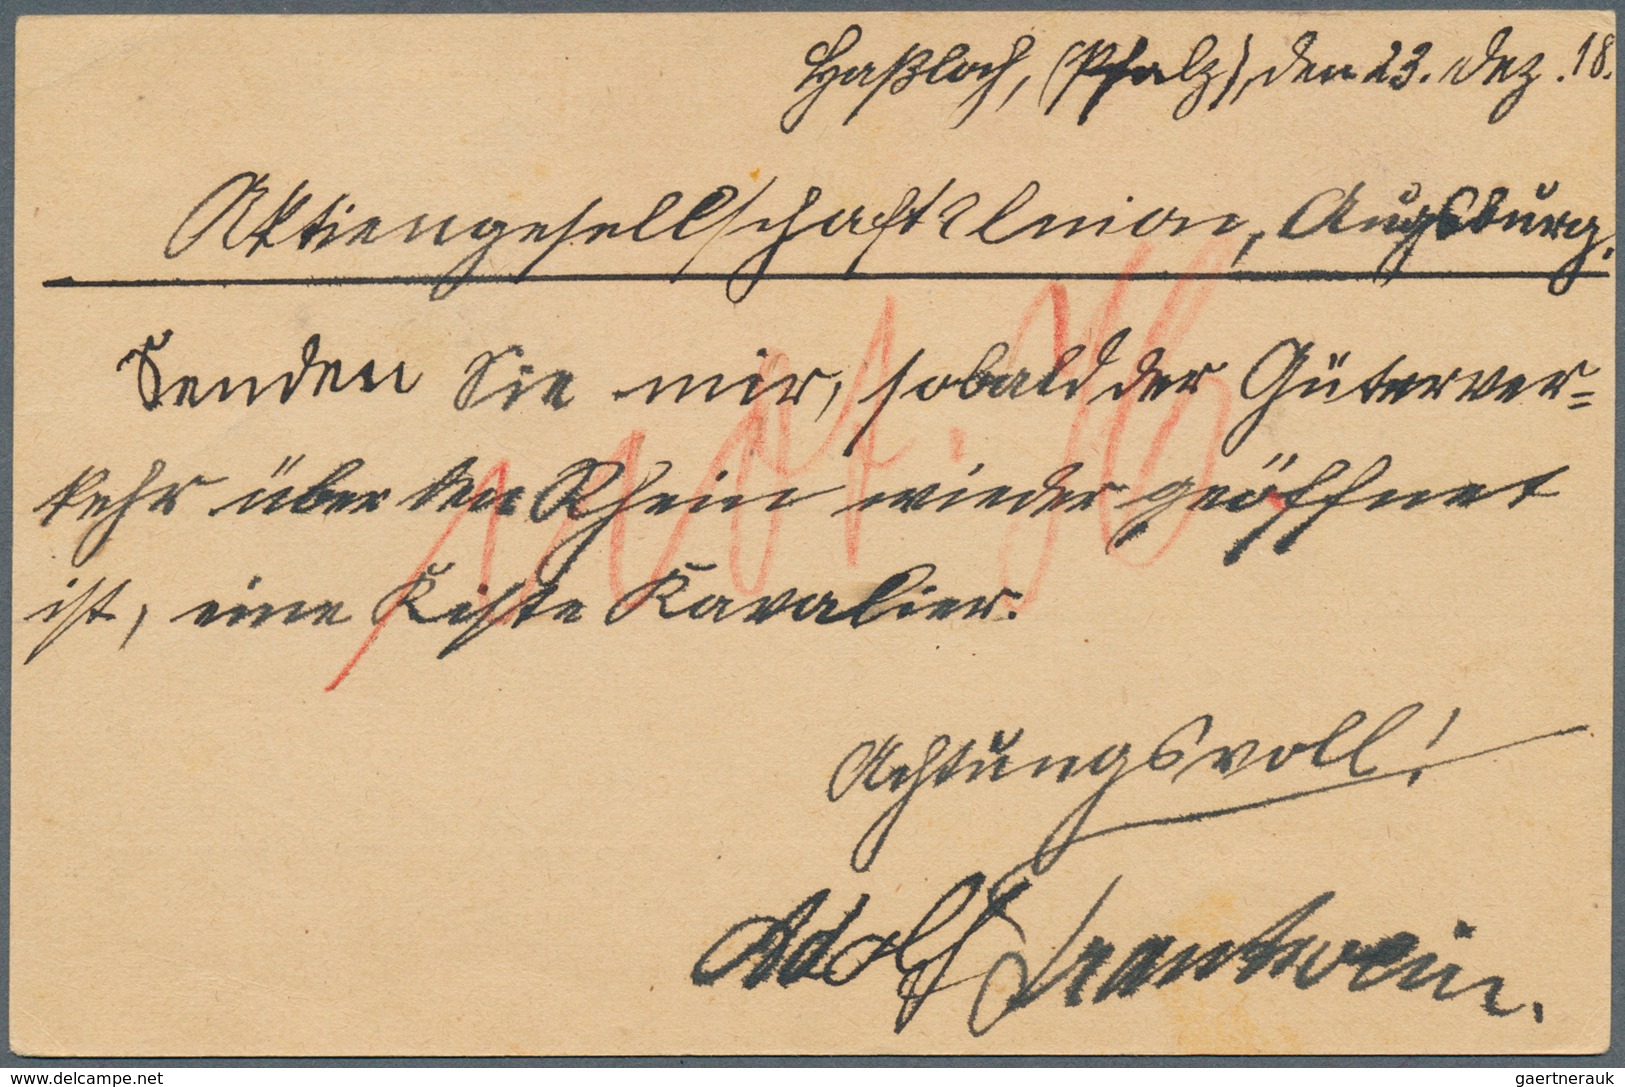 Haßloch, (Pfalz), den 23. Dez. 18.
Aktiengesellschaft Union, Augsburg.
Senden Sie mir, sobald der Güterver=
kehr über den Rhein wieder geöffnet
ist, eine Kiste Kavalier.
Achtungsvoll!
Adolf Trautwein.
www.delcampe.net
gaertnerauk